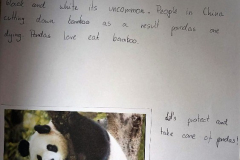 black and white its uncommon. People in China
cutting down bamboo as a result pandas are
dying Pandas love eat bamboo
Let's protect and
take care of pandas!